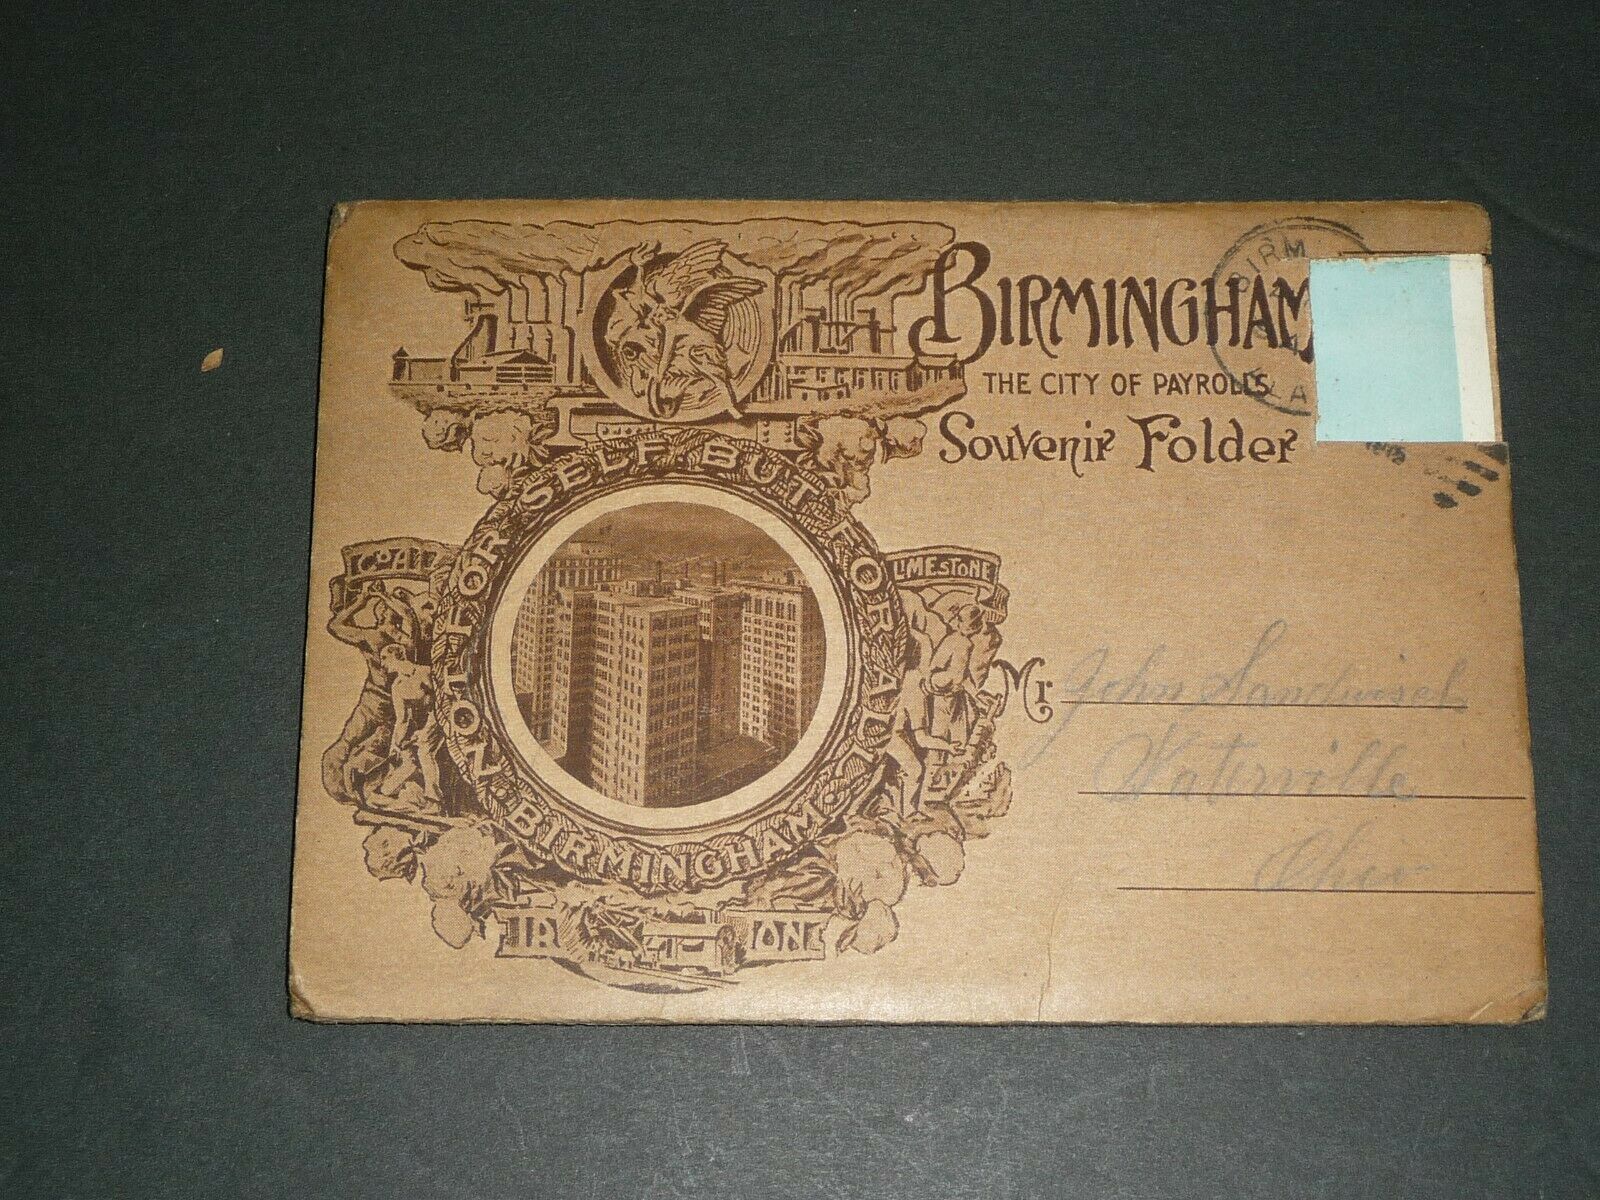 BIRMINGHAM
THE CITY OF PAYROLLS
Souvenir Folder
BIRM
ALA
NOT FOR SELF BUT FOR ALL
BIRMINGHAM
COAL
LIMESTONE
IRON
Mr. John Sandwisch
Waterville
Ohio